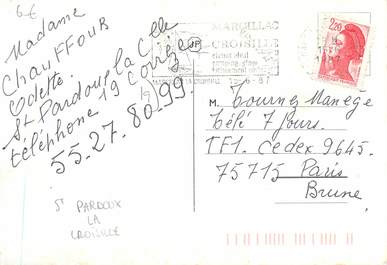 6€
Madame
Chauffour
Odette.
St Pardoux la C
19 Corrèze
téléphone
55.27.80.99.
MARCILLAC
LA
CROISILLE
2,20
M. Tournez Manège
Télé 7 Jours.
TF1. Cedex 9645.
75715 Paris
Brune
St PARDOUX
LA
CROISILLE